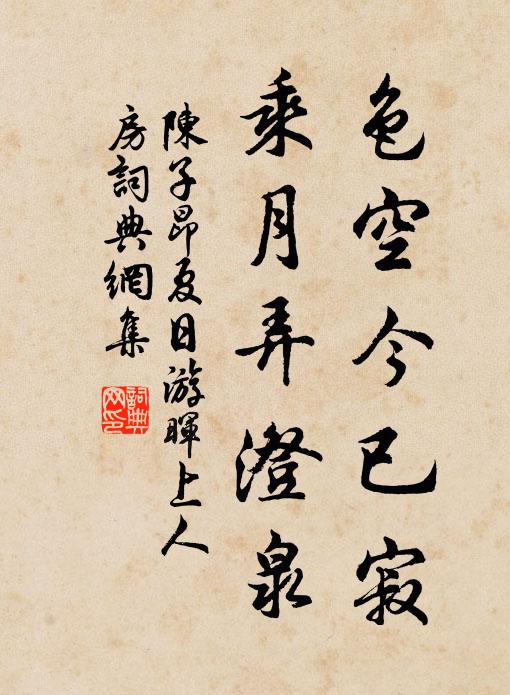 色空今已寂
乘月弄澄泉
陳子昂夏日游暉上人
房詞典網集
詞典網印